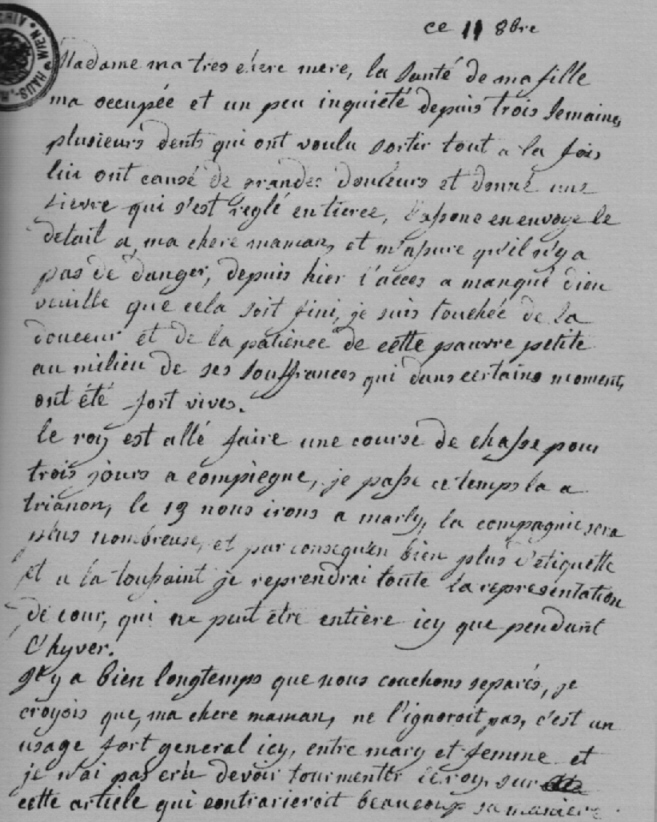 ce 11 8bre
Madame ma tres chere mere, la santé de ma fille
ma occupée et un peu inquiété depuis trois semaines
plusieurs dents qui ont voulu sortir tout a la fois
lui ont causé de grandes douleurs et donné une
fievre qui s'est reglé en tierce, Lassone en envoye le
detail a, ma chere maman, et m'assure qu'il n'y a
pas de danger, depuis hier l'acces a manqué dieu
veuille que cela soit fini, je suis touchée de la
douceur et de la patience de cette pauvre petite
au milieu de ses souffrances qui dans certains moments
ont été fort vives.
le roy est allé faire une course de chasse pour
trois jours a compiegne, je passe ce temps la a
trianon, le 19 nous irons a marly, la compagnie sera
plus nombreuse, et par consequen bien plus d'etiquette
et a la toussaint je reprendrai toute la representation
de cour, qui ne peut être entiere icy que pendant
l'hyver.
Il y a bien longtemps que nous couchons separés, je
croyois que, ma chere maman, ne l'ignoroit pas, c'est un
usage fort general icy, entre mary et femme et
je n'ai pas cru devoir tourmenter le roy, sur
cette article qui contrarieroit beaucoup sa maniere
HAUS-
WIEN